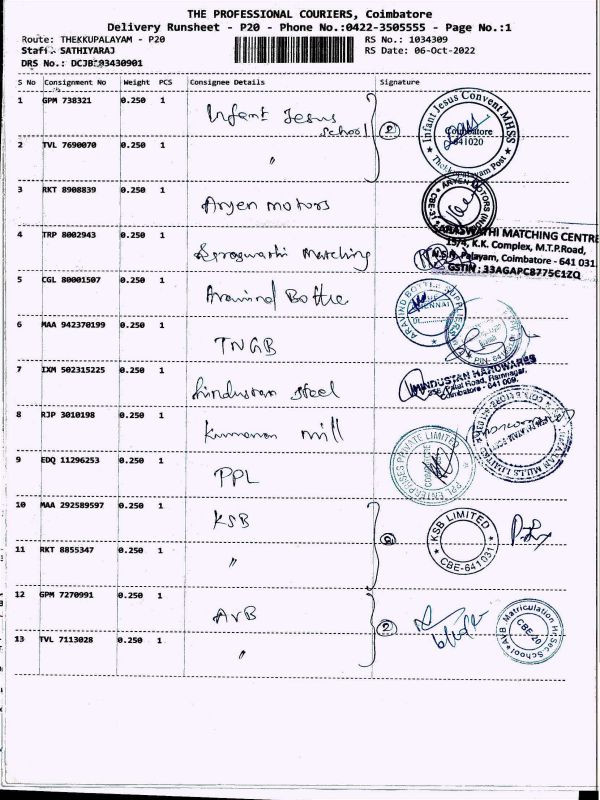 THE PROFESSIONAL COURIERS, Coimbatore
Delivery Runsheet - P20 - Phone No.:0422-3505555 - Page No.:1
Route: THEKKUPALAYAM - P20 RS No.: 1034309
Staff: SATHIYARAJ RS Date: 06-Oct-2022
DRS No.:
S No Consignment No Weight PCS Consignee Details Signature
1 GPM 738321 0.250 1 Infant Jesus School 2
Infant Jesus Convent MHSS Coimbatore 641020 Thekkupalayam Post
2 TVL 7690070 0.250 1 "
3 RKT 8908839 0.250 1 Aryen Motors
ARYEN MOTORS
4 TRP 8002943 0.250 1 Saraswathi Matching
SARASWATHI MATCHING CENTRE
15/4, K.K. Complex, M.T.P.Road,
N.S.N. Palayam, Coimbatore - 641 031
GSTIN : 33AGAPC8775C1ZQ
5 CGL 80001507 0.250 1 Aravind Bottle
ARAVIND BOTTLE SUPPLIERS
6 MAA 942370199 0.250 1 TNGB
7 IXM 502315225 0.250 1 Hindustan Steel
HINDUSTAN HARDWARES
Coimbatore - 641 009.
8 RJP 3010198 0.250 1 Kumaran mill
9 EDQ 11296253 0.250 1 PPL
PPL ENTERPRISES PRIVATE LIMITED COIMBATORE
10 MAA 292589597 0.250 1 KSB
KSB LIMITED CBE-641 031
11 RKT 8855347 0.250 1 "
12 GPM 7270991 0.250 1 AVB 2
AVB Matriculation Hr.Sec.School CBE-20
13 TVL 7113028 0.250 1 "